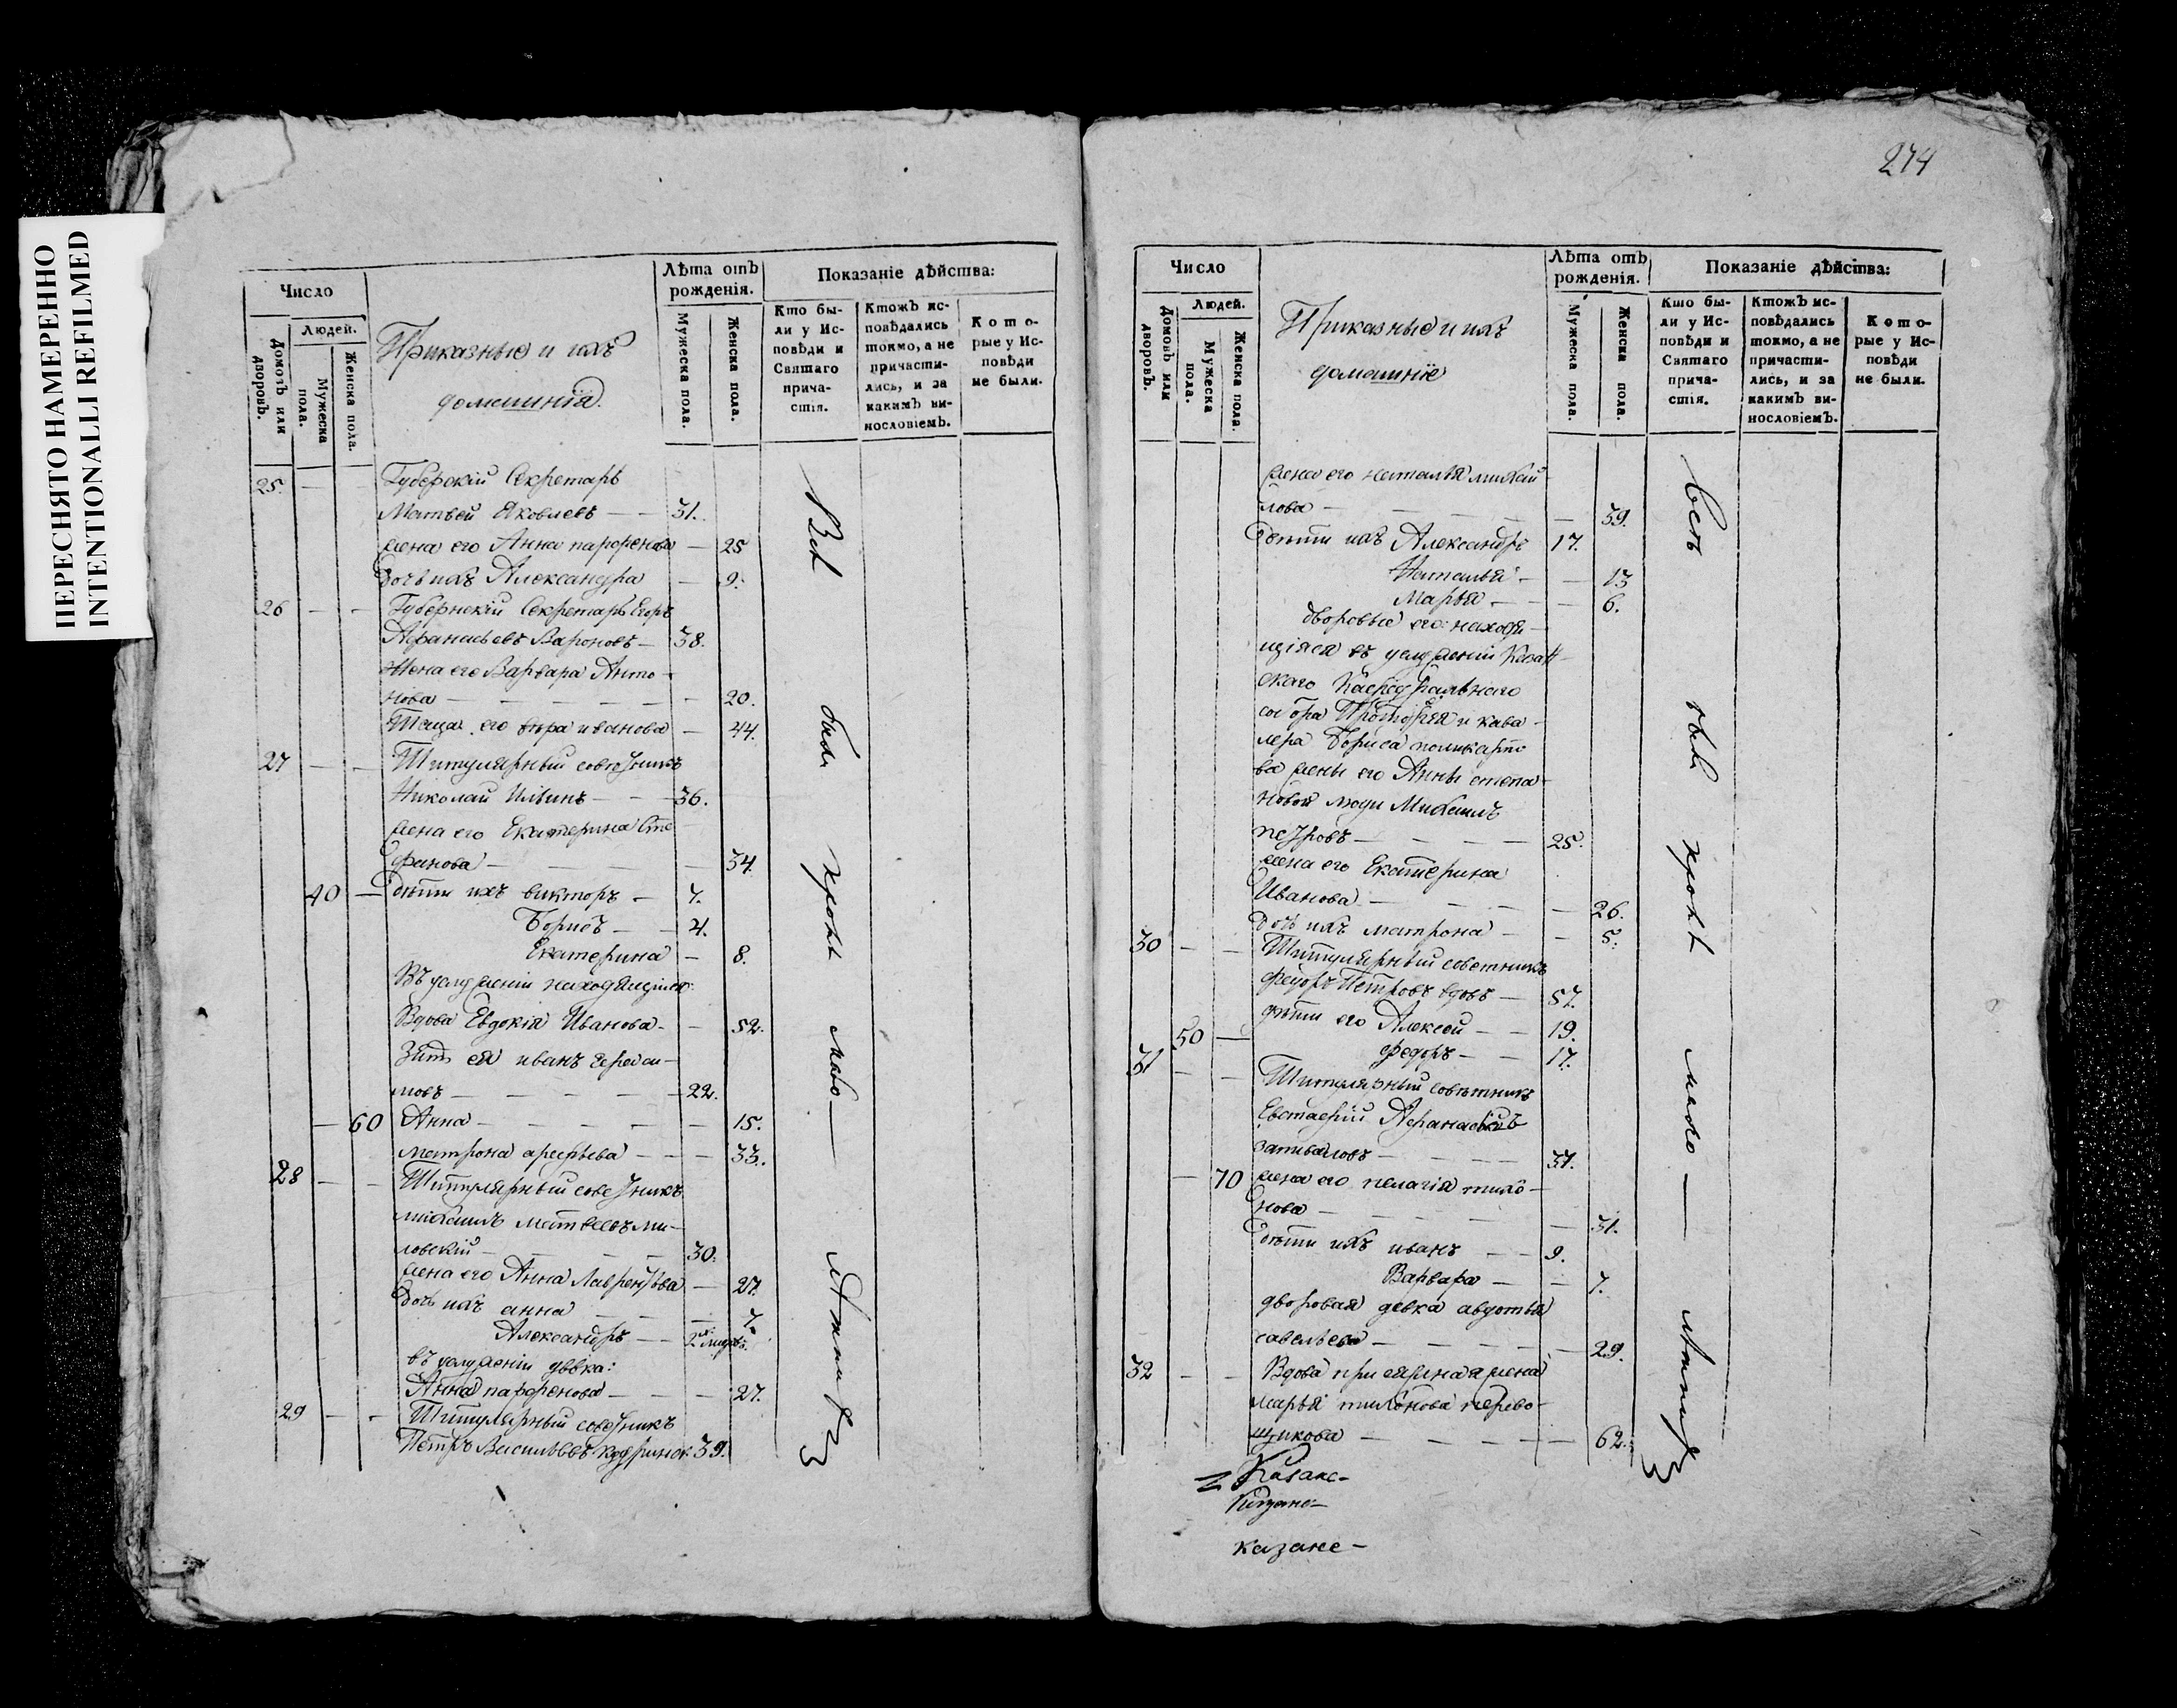 ПЕРЕСНЯТО НАМЕРЕННО
INTENTIONALLI REFILMED
274
Число
Людей.
Домовъ или дворовъ.
Мужеска пола.
Женска пола.
Приказныя и ихъ
домашнія.
Лѣта отъ
рожденія.
Мужеска пола.
Женска пола.
Показаніе дѣйства:
Кто бы-
ли у Ис-
повѣди и
Святаго
прича-
стія.
Ктожъ ис-
повѣдались
токмо, а не
причасти-
лись, и за
какимъ ви-
нословіемъ.
Кото-
рые у Ис-
повѣди
не были.
25. — Губерскій Секретарь
Матвей Яковлевъ — — 31.
жена его Анна парфенова — 25
дочь ихъ Александра — 9.
26 — — Губернскій Секретарь Егоръ
Афанасьевъ Вароновъ — 38.
жена его Варвара Анто-
нова — — — — — 20.
Теща его вѣра иванова — 44.
27 — — Титулярный советникъ
Николай Ильинъ — — 36.
жена его Екатерина Сте-
фанова — — — — 34.
40 — дѣти ихъ викторъ — 7.
Борисъ — — 4.
Екатерина — 8.
Въ услуженіи находящіися:
Вдова Евдокія Иванова — — 52.
Зять ея иванъ гераси-
мовъ — — — — — 22.
— 60 Анна — — — — — 15.
матрона арефьева — — — 33.
28 — — Титулярный советникъ
михаилъ матвеевъ ми-
ловскій — — — — 30.
жена его Анна Лаврентьва — 27.
дочь ихъ анна — — — 7.
Александръ — — 2
въ услуженіи дѣвка:
Анна парфенова — — — 27.
29 — — Титулярный советникъ
Петръ Васильевъ 39.
Всѣ были кромѣ мало —
Число
Людей.
Домовъ или дворовъ.
Мужеска пола.
Женска пола.
Приказныя и ихъ
домашніе
Лѣта отъ
рожденія.
Мужеска пола.
Женска пола.
Показаніе дѣйства:
Кто бы-
ли у Ис-
повѣди и
Святаго
прича-
стія.
Ктожъ ис-
повѣдались
токмо, а не
причасти-
лись, и за
какимъ ви-
нословіемъ.
Кото-
рые у Ис-
повѣди
не были.
жена его наталья михай-
лова — — — — — 39.
дѣти ихъ Александръ 17.
Наталья — — 13
Марья — — — 6.
дворовые его: находя-
щіяся въ услуженіи Казан-
скаго Каѳедральнаго
собора Протоіерея и кава-
лера Бориса поликарпо
ва жены его Анны степа-
новой люди Михаилъ
петровъ — — — — 25.
жена его Екатерина
Иванова — — — — 26.
дочь ихъ матрона — — 5.
30 — — Титулярный советникъ
Федоръ Петровъ вдовъ — 57.
50 — дѣти его Алексей — — 19.
федоръ — — 17.
31 — — Титулярный совѣтникъ
Евстафій Афанасьевъ
— — — 37.
— 70 жена его пелагія тихо-
нова — — — — 31.
дѣти ихъ иванъ — — 9.
Варвара — — 7.
дворовая девка авдотья
савельева — — — — 29.
32 — — Вдова жена
марья тихонова перево-
щикова — — — — 62.
Всѣ были кромѣ мало —
Казанс-
казане-